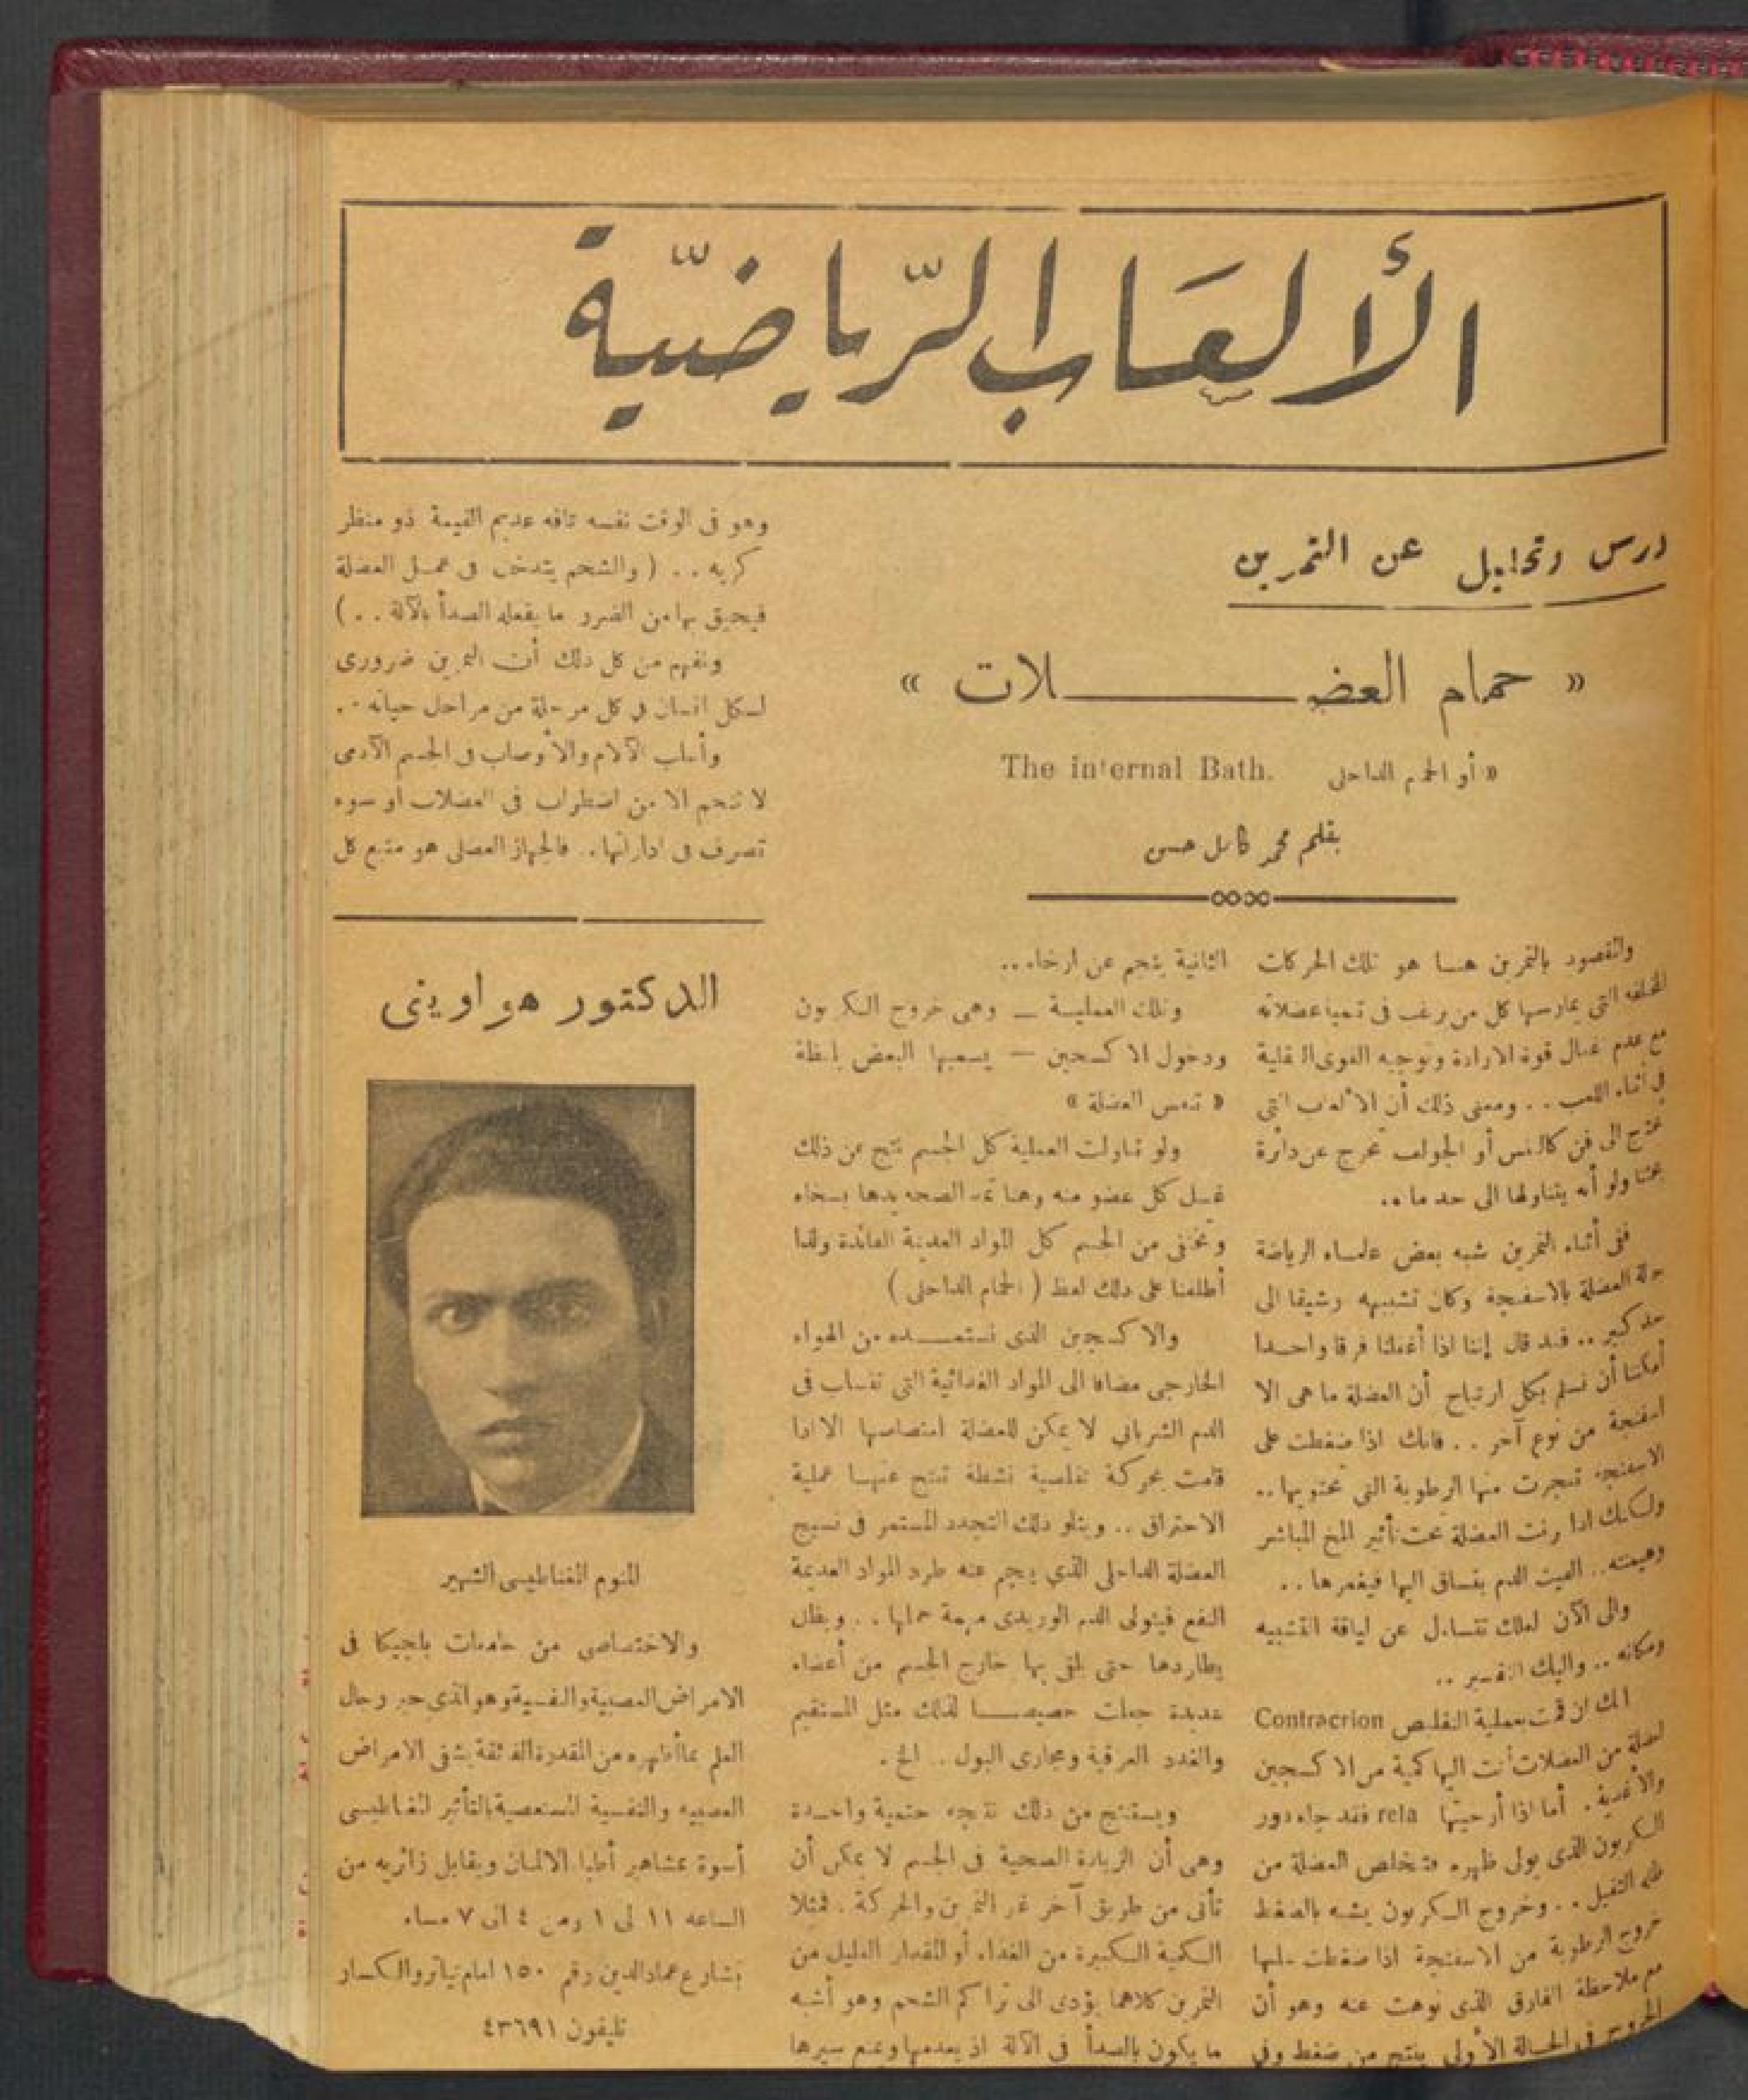 الألعاب الرياضيّة
درس وتحليل عن التمرين
« حمام العضلات »
« أو الحمام الداخلى The internal Bath.
بقلم محمد كامل حسن
والمقصود بالتمرين هنا هو تلك الحركات
المختلفة التي يمارسها كل من يرغب فى تنمية عضلاته
مع عدم اغفال قوة الارادة وتوجيه القوى العقلية
فى أثناء اللعب . . ومعنى ذلك أن الألعاب التى
تحتاج الى فن كالتنس أو الجولف تخرج عن دائرة
بحثنا ولو أنه يتناولها الى حد ما ..
ففى أثناء التمرين شبه بعض علماء الرياضة
حالة العضلة بالاسفنجة وكان تشبيهه رشيقا الى
حد كبير .. فقد قال إننا اذا أغفلنا فرقا واحدا
أمكننا أن نسلم بكل ارتياح أن العضلة ما هى الا
اسفنجة من نوع آخر . . فانك اذا ضغطت على
الاسفنجة تفجرت منها الرطوبة التى تحتويها ..
ولكنك اذا العضلة تحت تأثير المخ المباشر
وهيمنته .. ألفيت الدم ينساق اليها فيغمرها . .
والى الآن لعلك تتساءل عن لياقة التشبيه
ومكانه .. واليك التفسير ..
انك ان قمت بعملية التقلص Contracrion
لعضلة من العضلات أتت اليها كمية من الاكسجين
والأغذية . أما اذا أرحيتها rela فقد جاء دور
الكربون الذى يولى ظهره فتتخلص العضلة من
ظله الثقيل . . وخروج الكربون يشبه بالضغط
خروج الرطوبة من الاسفنجة اذا ضغطت عليها
مع ملاحظة الفارق الذى نوهت عنه وهو أن
الخروج فى الحالة الأولى ينتج من ضغط وفي
الثانية ينجم عن ارخاء ..
وتلك العملية — وهى خروج الكربون
ودخول الاكسجين — يسميها البعض بلفظة
« تنفس العضلة »
ولو تناولت العملية كل الجسم نتج عن ذلك
غسل كل عضو منه وهنا تمد الصحة يدها بسخاء
وتختفى من الجسم كل المواد العديمة الفائدة ولذا
أطلقنا على ذلك لفظ ( الحمام الداخلى )
والاكسجين الذى نستمده من الهواء
الخارجى مضافا الى المواد الغذائية التى تنساب فى
الدم الشريانى لا يمكن للعضلة امتصاصها الا اذا
قامت بحركة تقلصية نشطة تنتج عنها عملية
الاحتراق .. ويتلو ذلك التجدد المستمر فى نسيج
العضلة الداخلى الذي ينجم عنه طرد المواد العديمة
النفع فيتولى الدم الوريدى مهمة حملها . . ويظل
يطاردها حتى يلقى بها خارج الجسم من أعضاء
عديدة جعلت خصيصا لذلك مثل المستقيم
والغدد العرقية ومجارى البول .. الخ .
ويستنتج من ذلك نتيجة حتمية واحدة
وهى أن الزيادة الصحية فى الجسم لا يمكن أن
تأتى من طريق آخر غير التمرين والحركة . فمثلا
الكمية الكبيرة من الغذاء أو المقدار القليل من
التمرين كلاهما يؤدى الى تراكم الشحم وهو أشبه
ما يكون بالصدأ فى الآلة اذ يعدمها ويمنع سيرها
وهو فى الوقت نفسه تافه عديم القيمة ذو منظر
كريه . . ( والشحم يتدخل فى عمل العضلة
فيحيق بها من الضرر ما يفعله الصدأ بالآلة . . )
ونفهم من كل ذلك أن التمرين ضرورى
لكل انسان فى كل مرحلة من مراحل حياته ..
وأغلب الآلام والأوصاب فى الجسم الآدمى
لا تنجم الا من اضطراب فى العضلات أو سوء
تصرف فى ادارتها .. فالجهاز العضلى هو منبع كل
الدكتور هواوينى
المنوم المغناطيسى الشهير
والاختصاصى من جامعات بلجيكا فى
الامراض العصبية والنفسية وهو الذى حير رجال
العلم بما أظهره من المقدرة الفائقة بشفى الامراض
العصبيه والنفسية المستعصية بالتأثير المغناطيسى
أسوة بمشاهير أطباء الالمان ويقابل زائريه من
الساعه ١١ الى ١ ومن ٤ الى ٧ مساء
بشارع عماد الدين رقم ١٥٠ امام تياترو الكسار
تليفون ٤٣٦٩١